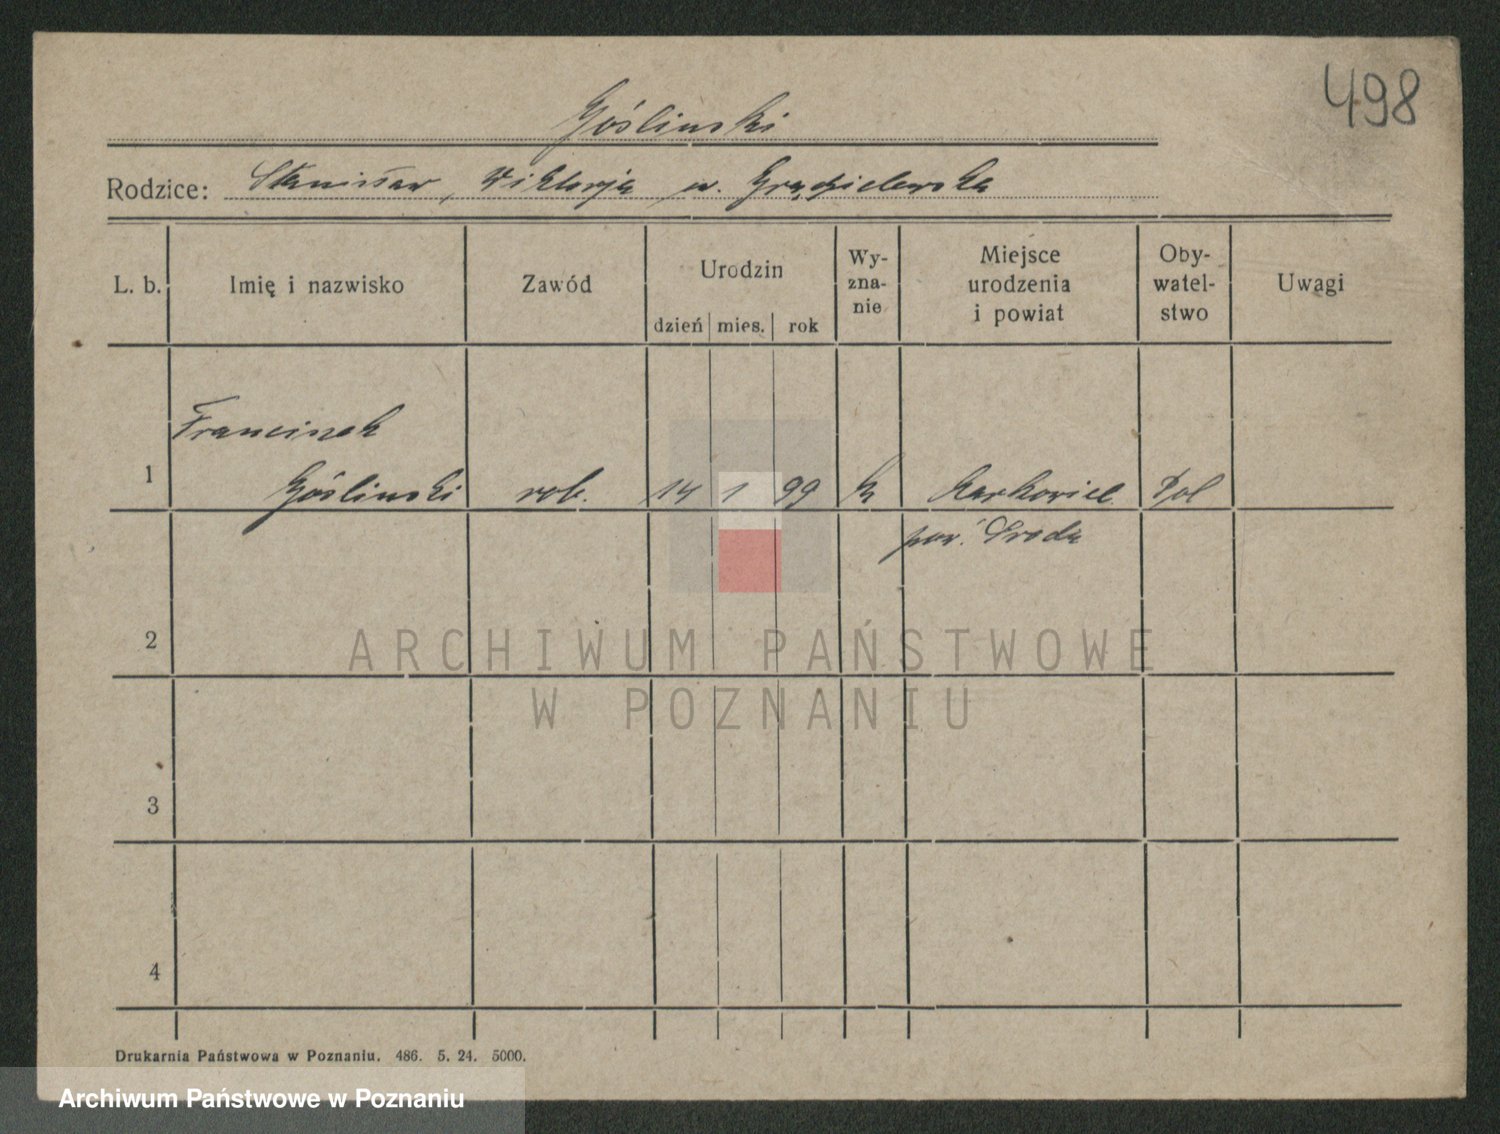 498
Góślinski
Rodzice: Stanisław, Wiktorja
L. b. Imię i nazwisko Zawód Urodzin dzień mies. rok Wy-znanie Miejsce urodzenia i powiat Oby-watel-stwo Uwagi
Franciszek
1 Góślinski rob. 14 1 99 k Pol
pow. Środa
2
ARCHIWUM PAŃSTWOWE
W POZNANIU
3
4
Drukarnia Państwowa w Poznaniu. 486. 5. 24. 5000.
Archiwum Państwowe w Poznaniu